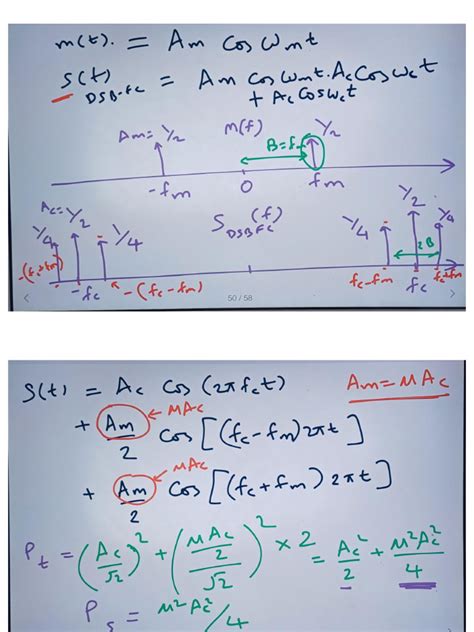 m(t). = Am Cos ωmt
S(t) DSB-fc = Am Cos ωmt. Ac Cos ωct
+ Ac Cos ωct
Am = 1/2 M(f) B = fm 1/2
-fm 0 fm
Ac = 1/2 1/4 1/4 S DSBFC (f) 1/4 1/2 1/4
2B
-(fc+fm) -fc -(fc-fm) fc-fm fc fc+fm
50 / 58
S(t) = Ac Cos (2πfct) Am = μAc
+ Am/2 Cos [(fc-fm) 2πt] μAc
+ Am/2 Cos [(fc+fm) 2πt] μAc
Pt = (Ac/√2)² + (μAc/2/√2)² × 2 = Ac²/2 + μ²Ac²/4
Ps = μ²Ac²/4